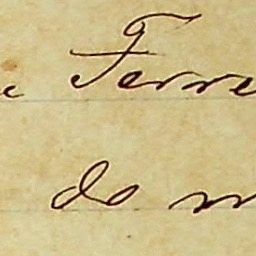 Ferre
do